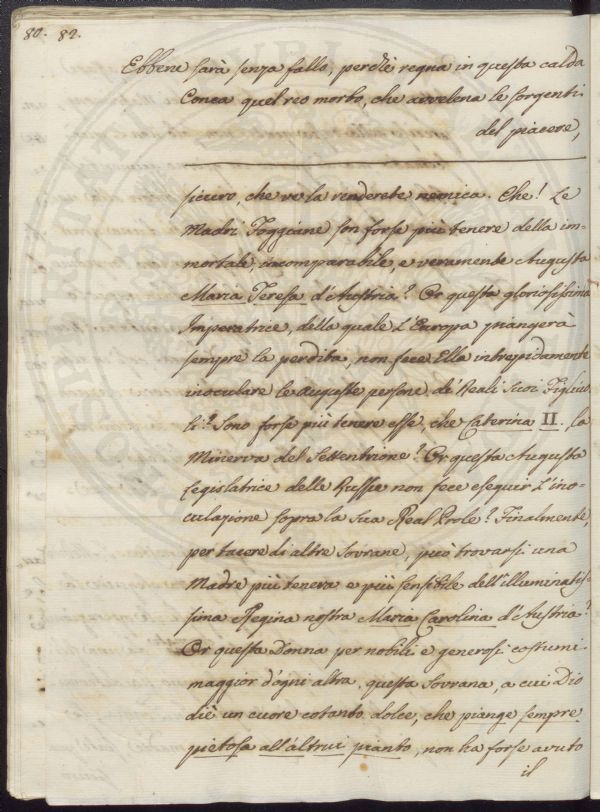 80. 82.
Ebbene sarà senza fallo, perchè regna in questa calda
Conca quel reo morbo, che avvelena le sorgenti
del piacere,
sicuro, che ve la renderete nemica. Che! Le
Madri Foggiane son forse più tenere della im-
mortale, incomparabile, e veramente Augusta
Maria Teresa d'Austria? Or questa gloriosissima
Imperatrice, della quale l'Europa piangerà
sempre la perdita, non fece Ella intrepidamente
inoculare le auguste persone de' Reali Suoi Figliuo-
li? Sono forse più tenere esse, che Caterina II. la
Minerva del Settentrione? Or questa Augusta
Legislatrice delle Russie non fece eseguir l'ino-
culazione sopra la sua Real Prole? Finalmente,
per tacere di altre Sovrane, può trovarsi una
Madre più tenera e più sensibile dell'illuminatis-
sima Regina nostra Maria Carolina d'Austria?
Or questa Donna per nobili e generosi costumi
maggior d'ogni altra, questa Sovrana, a cui Dio
diè un cuore cotanto dolce, che piange sempre
pietosa all'altrui pianto, non ha forse avuto
il